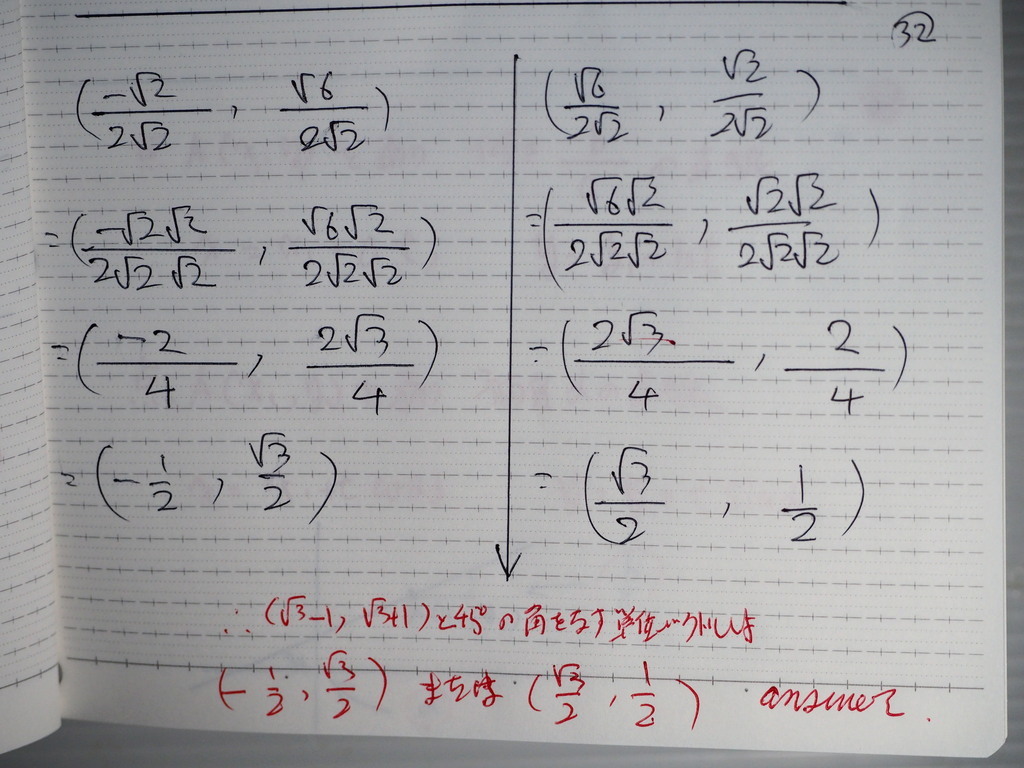 32
(-√2/2√2 , √6/2√2)
=(-√2√2/2√2√2 , √6√2/2√2√2)
=(-2/4 , 2√3/4)
=(-1/2 , √3/2)
(√6/2√2 , √2/2√2)
=(√6√2/2√2√2 , √2√2/2√2√2)
=(2√3/4 , 2/4)
=(√3/2 , 1/2)
∴(√3-1, √3+1)と45°の角をなす単位ベクトルは
(-1/2 , √3/2) または (√3/2 , 1/2) answer.